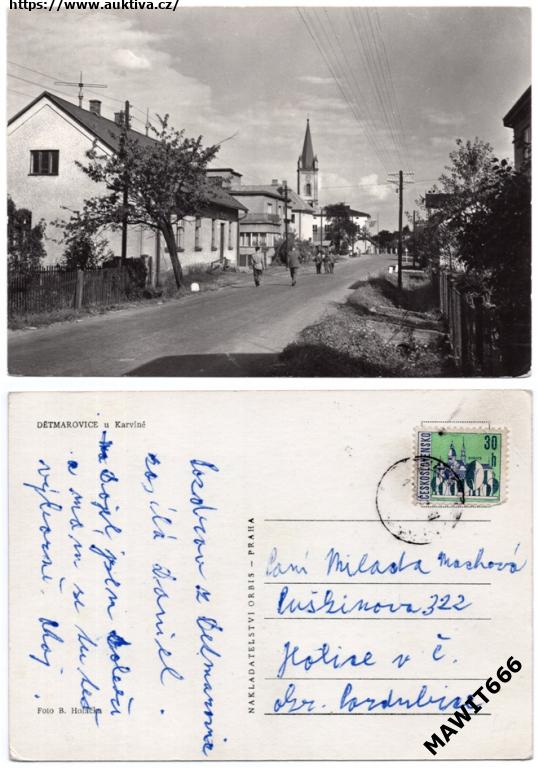 https://www.auktiva.cz/
DĚTMAROVICE u Karviné
Pozdrav z Dětmarovic
zasílá Daniel.
jsem
a mám se tu tak
výborně. Ahoj.
Foto B. Holačka
NAKLADATELSTVÍ ORBIS – PRAHA
ČESKOSLOVENSKO
30
h
Paní Milada Machová
Puškinova 322
Holice v č.
okr. Pardubice
MAWIT666